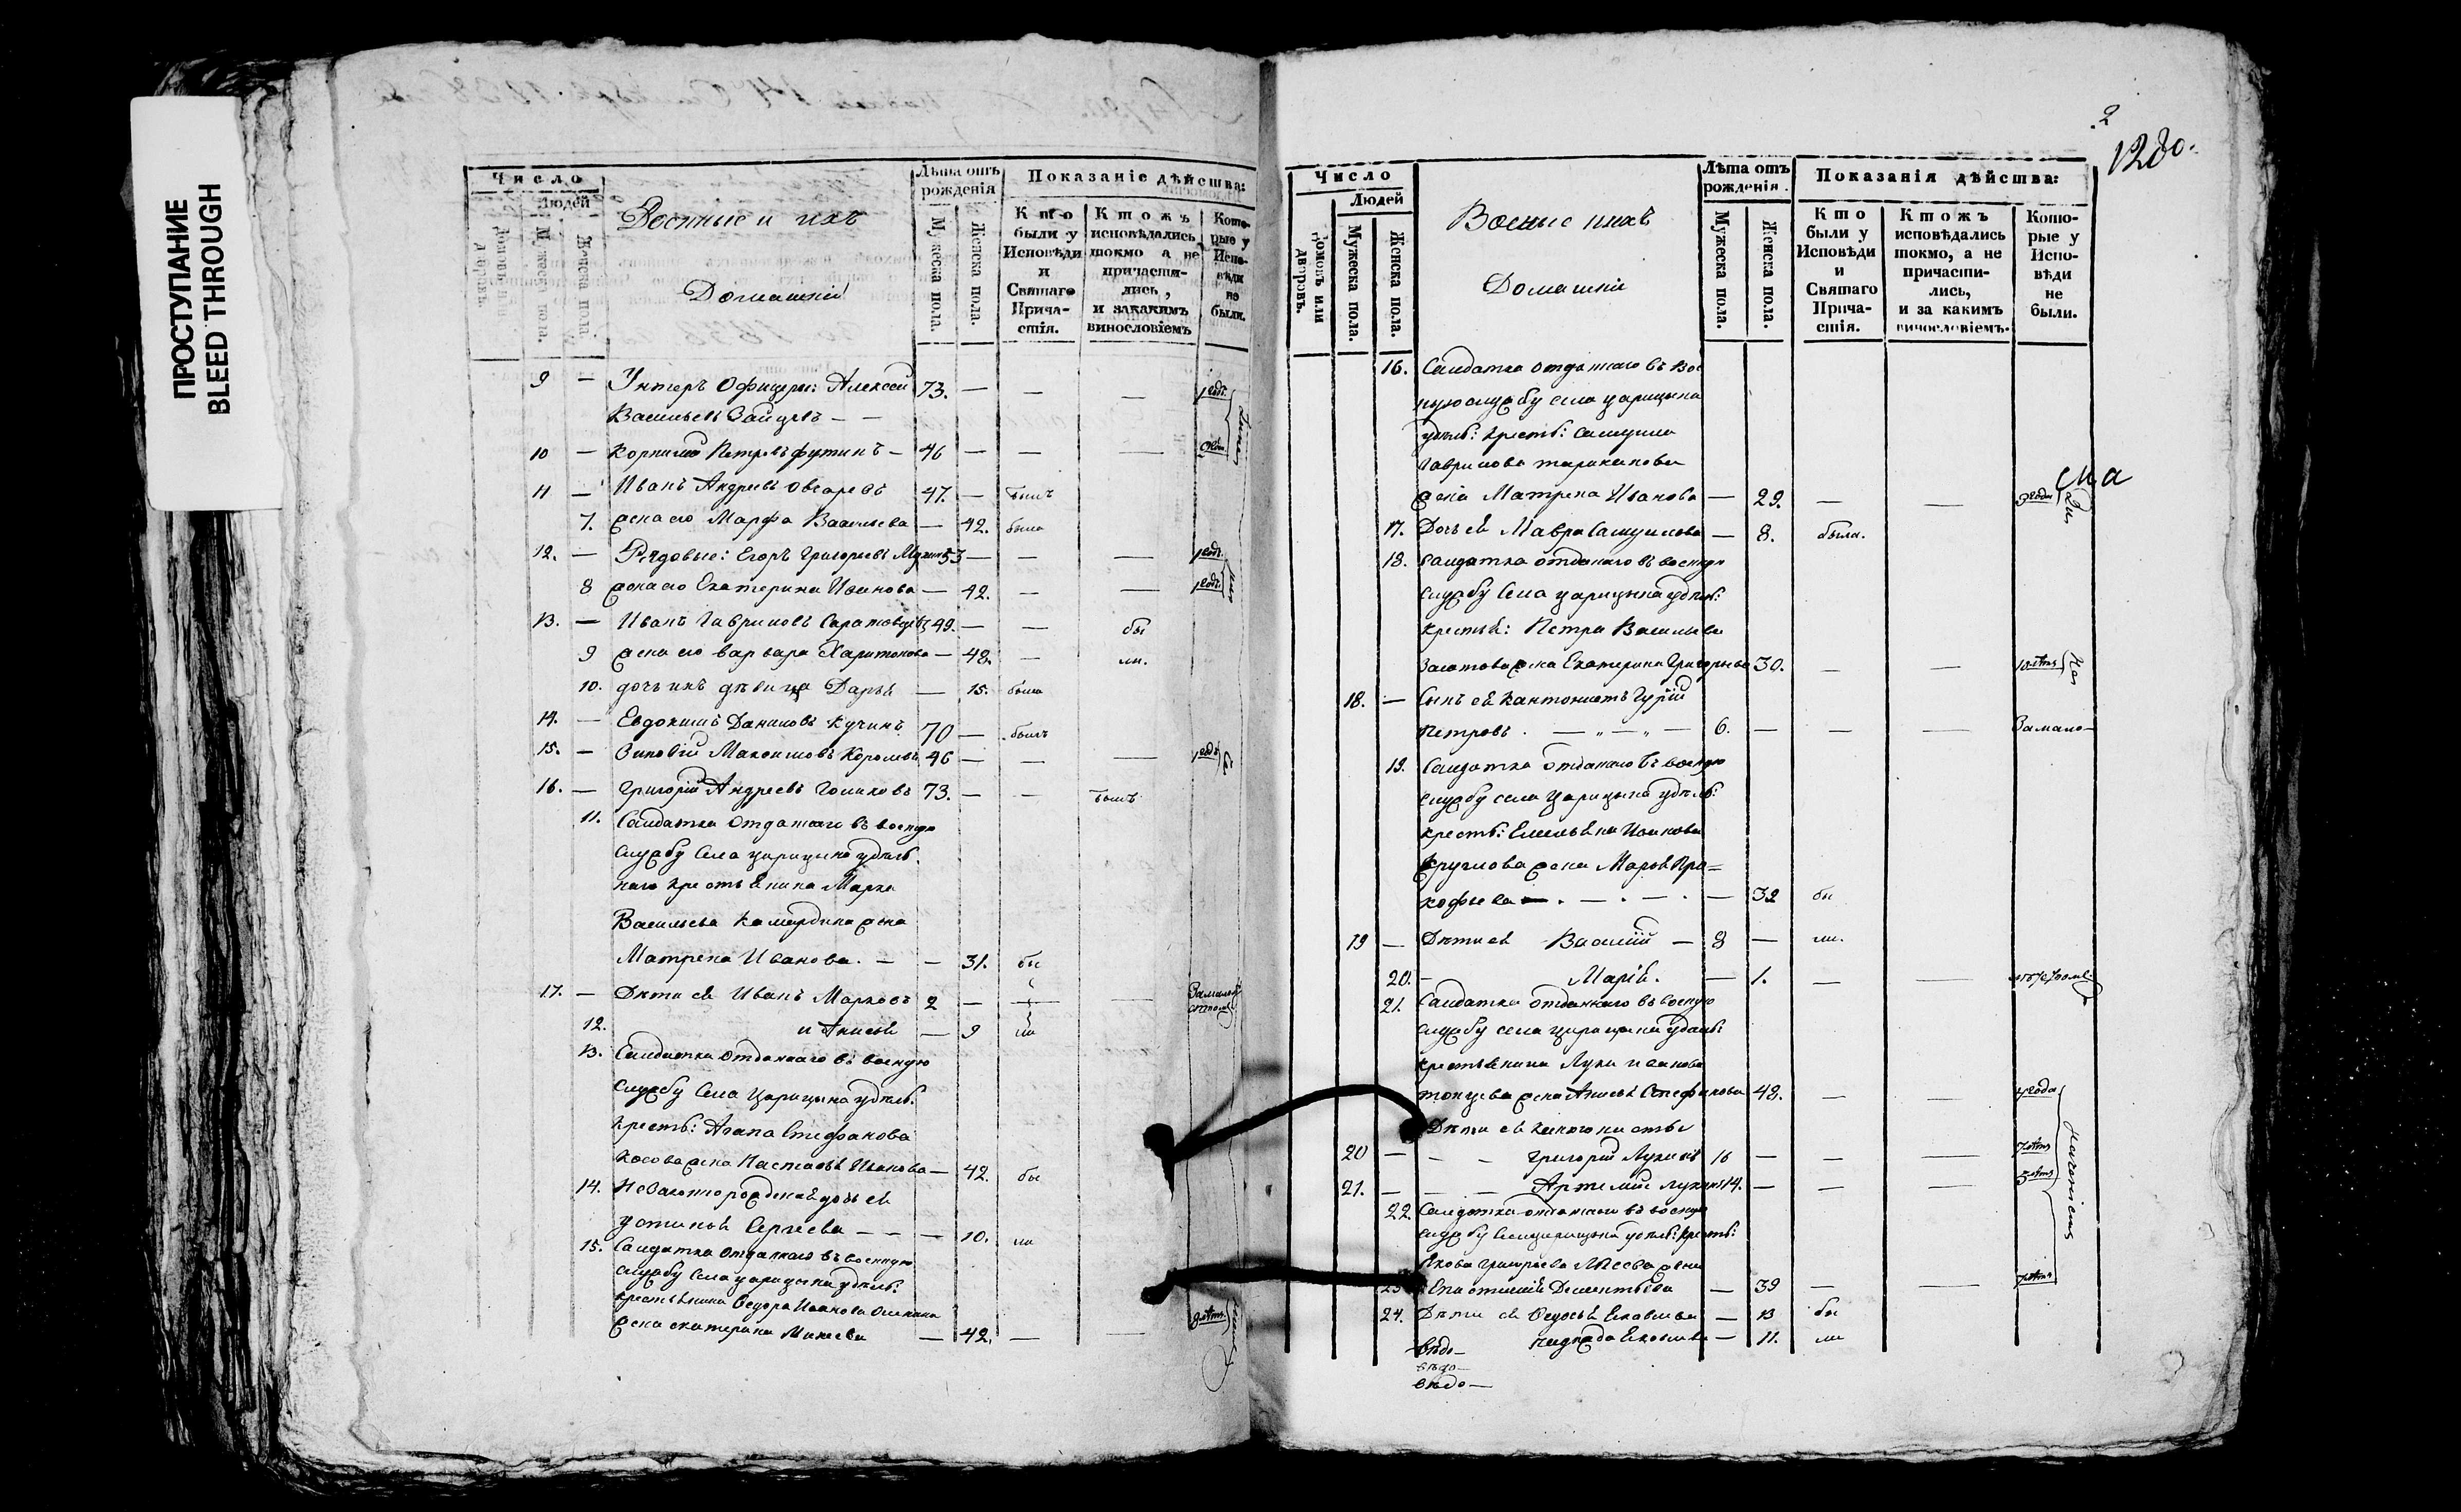 ПРОСТУПАНИЕ
BLEED THROUGH
Число
Людей
Мужеска пола.
Женска пола.
Военные и ихъ
Домашніи
Лѣта отъ рожденія
Мужеска пола.
Женска пола.
Показаніе дѣйства:
Кто были у Исповѣди и Святаго Прича-стія.
Ктожъ исповѣдались токмо а не причасти-лись, и закакимъ винословіемъ
Кото-рые у Испо-вѣди не были.
9 — Унтеръ Офицеры: Алексей 73. — — — 1 годъ
Васильевъ Зайцевъ — —
10 — Корнилій Петровъ футинъ — 46 — — —
11 — Иванъ Андреевъ Овсаревъ 47. — былъ
7. жена его Марфа Васильева — 42. была
12. — Рядовые: Егоръ Григорьевъ 53 — — — 1 годъ
8 жена его Екатерина Иванова — 42. — — 1 годъ
13. — Иванъ Гавриловъ 49. — — бы
9 жена его варвара Харитонова — 48. — ли.
10. дочь ихъ дѣвица Дарья — 15. была
14. — Евдокимъ Даниловъ Кучинъ 70 — былъ
15. — Зиновій Максимовъ Королевъ 46 — — — 1 годъ
16. — Григорій Андреевъ Голиковъ 73. — — былъ
11. Салдатка отданнаго въ военную
службу Села царицына удѣль
наго крестьянина Марка
Васильева жена
Матрена Иванова. — — 31. бы
17. — Дѣти ея Иванъ Марковъ 2 — — —
12. и Анисья — 9 ли
13. Салдатка отданнаго въ военную
службу Села Царицына удѣль:
крестья: Агапа Стефанова
Косова жена Настасья Иванова — 42. бы
14. дочь ея
Устинья Сергеева — — — 10. ли
15. Салдатка отданнаго въ военную
службу Села царицына удѣль:
крестьянина Федора Иванова
жена екатерина Михеева — 42. — — 8 лѣтъ
2
1280.
Число
Людей
Домовъ или дворовъ.
Мужеска пола.
Женска пола.
Военые ихъ
Домашніи
Лѣта отъ рожденія.
Мужеска пола.
Женска пола.
Показанія дѣйства:
Кто были у Исповѣди и Святаго Прича-стія.
Ктожъ исповѣдались токмо, а не причасти-лись, и за какимъ винословіемъ.
Кото-рые у Испо-вѣди не были.
16. Салдатка отданнаго въ вое
ную службу села царицына
удѣль: крестья: Самуила
Гаврилова тараканова
жена Матрена Иванова — 29. — — 3 годы
17. Дочь ея Мавра Самуилова — 8. была.
18. салдатка отданаго въ военную
службу Села царицына удѣль:
крестья: Петра Васильева
жена Екатерина Григорьева 30. — — 10 лѣтъ
18. — Сынъ ея кантонистъ Гурій
Петровъ. — „ — „ — 6. — — — Замало—
19. Салдатка отданаго въ военую
службу села Царицына удѣль:
крестья: Емельяна Иванова
Круглова жена Марья Про=
кофьева — . — . — . — 32 бы
19 — Дѣти ея Василій — 8 — ли.
20. — Марія. — 1. — —
21. Салдатка отданнаго въ военую
службу села царицына удѣль:
крестьянина Луки Иванова
жена Анисья Стефанова 48. — — 4 года
Дѣти ея кантонисты
20 — — — Григорій Лукинъ 16 — — — 7 лѣтъ
21. — — — Артемій лукинъ 14. — — — 5 лѣтъ
22. Салдатка отданнаго въ военую
службу Села царицына удѣль: крестья:
Якова Григорьева жена
23 Дементьева — 39 — — 7 лѣтъ
24. Дѣти ея Федосья Яковлева — 13 бы
Яковлева — 11. ли
вѣдо—
вѣдо—
вѣдо—